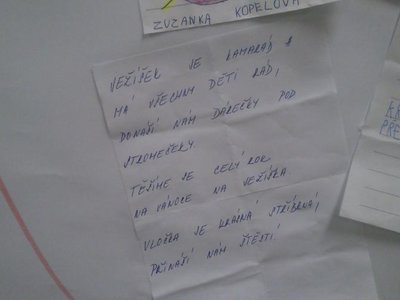 ZUZANKA KOPELOVÁ
JEŽÍŠEK JE KAMARÁD A
MÁ VŠECHNY DĚTI RÁD,
DONÁŠÍ NÁM DÁREČKY POD
STROMEČEKY.
TĚŠÍME SE CELÝ ROK
NA VÁNOCE NA JEŽÍŠKA.
VLOČKA JE KRÁSNÁ STŘÍBRNÁ,
PŘINÁŠÍ NÁM ŠTĚSTÍ